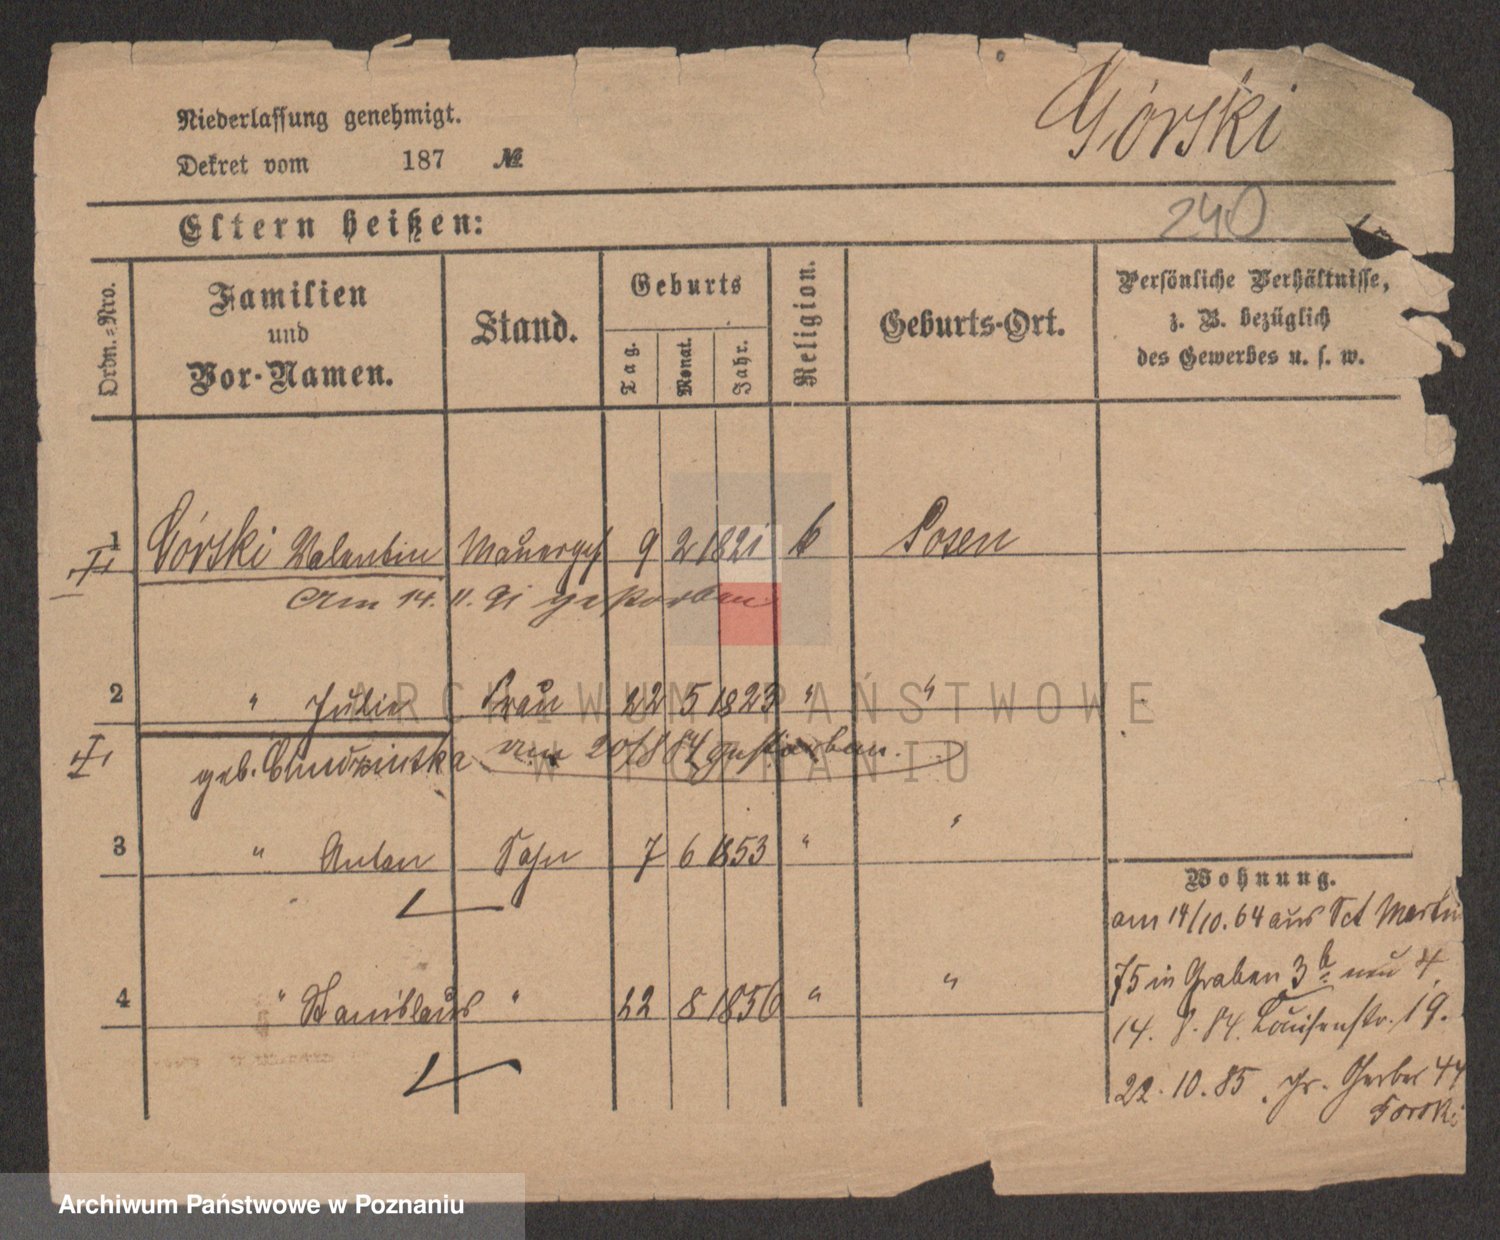 Górski
Niederlassung genehmigt.
Dekret vom 187 №
240
Eltern heißen:
Ordn.-Nro.
Familien
und
Vor-Namen.
Stand.
Geburts
Tag.
Monat.
Jahr.
Religion.
Geburts-Ort.
Persönliche Verhältnisse,
z. B. bezüglich
des Gewerbes u. s. w.
1 Górski Valentin Mauerges 9 2 1821 k Posen
Am 14. 11. 91 gestorben
2 " Julie Frau 22 5 1823 " "
geb. am 20/8 84 gestorben.
3 " Anton Sohn 7 6 1853 " "
4 " Stanislaus " 22 8 1856 " "
Wohnung.
am 14/10. 64 aus Sct Martin
75 in Graben 3b neu 4.
14. 8. 84. Louisenstr. 19.
22. 10. 85. gr. Gerber 44
Gorski
ARCHIWUM PAŃSTWOWE
W POZNANIU
Archiwum Państwowe w Poznaniu